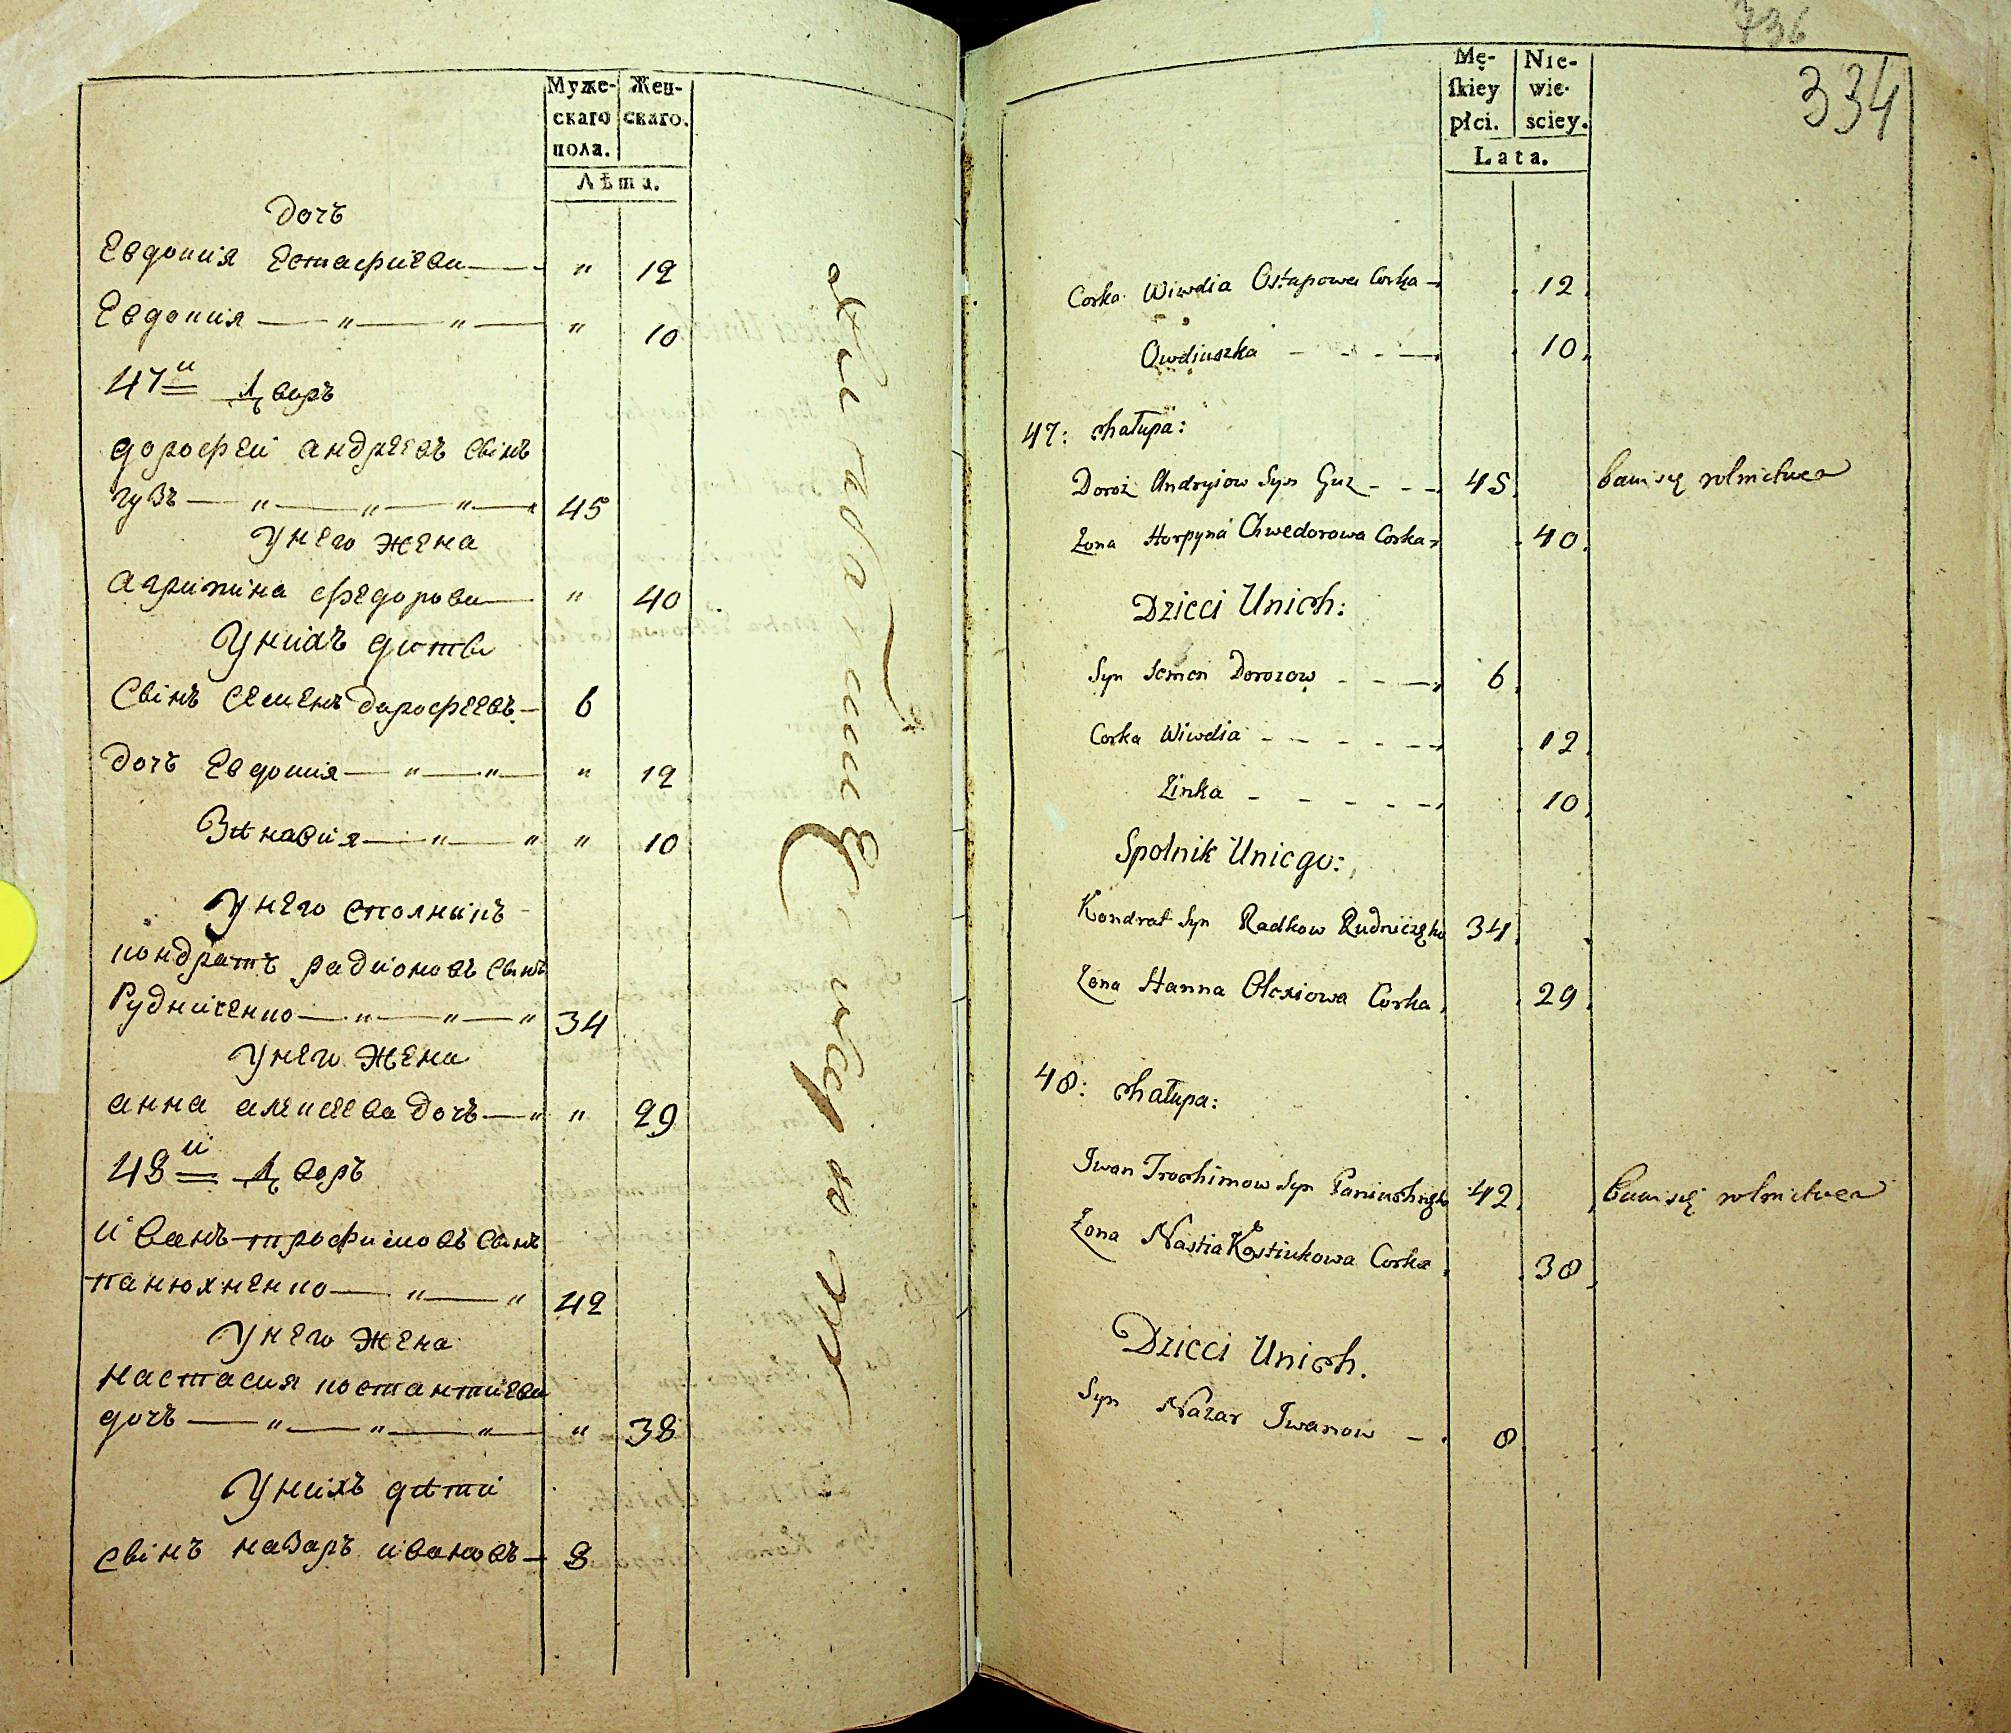 Муже-
скаго
пола.
Жен-
скаго.
Лѣта.
дочь
Евдокия Естафиева — " 12
Евдокия — " — " — " 10
47й Дворъ
дорофей андреевъ свінъ
гузъ — " — " — " — 45
У него жена
агрипина федорова — " 40
У нихъ дитві
Свінъ семенъ дорофеевъ — 6
дочь Евдокия — " — " — " 12
Зѣновия — " — " " 10
У него сполникъ
кондратъ радионовъ свінъ
Рудниченко — " — " — " 34
У него жена
анна алексеева дочь — " " 29
48й Дворъ
иванъ трофимовъ свінъ
панюхненко — " — " 42
У него жена
настасия костантиева
дочь — " — " — " — " 38
У нихъ дѣти
свінъ назаръ ивановъ — 8
736
334
Mę-
skiey
płci.
Nie-
wie-
sciey.
Lata.
Corka Wiwdia Ostapowa Corka — 12
Owdiuszka - - - — 10
47: chałupa:
Doroż Andryiow Syn Guz - - - 45 bawi się rolnictwem
Żona Horpyna Chwedorowa Corka 40
Dzieci Unich:
Syn Semen Dorozow - - — 6
Corka Wiwdia - - - - - 12
Zinka - - - - - 10
Spolnik Uniego:
Kondrat Syn Radkow Rudniczęko 34
Żona Hanna Olexiowa Corka 29
48: chałupa:
Iwan Trochimow Syn 42 bawi się rolnictwem
Żona Nastia Kostiukowa Corka 38
Dzieci Unich.
Syn Nazar Iwanow - 8